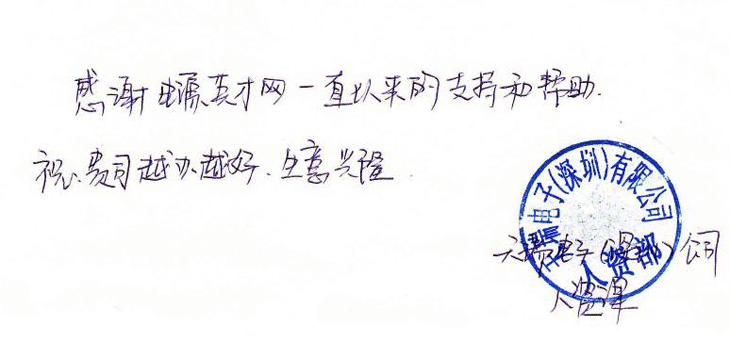 感谢电源英才网一直以来的支持和帮助.
祝贵司越办越好、生意兴隆.
电子(深圳)有限公司
人资部
电子(深圳)公司
人资课